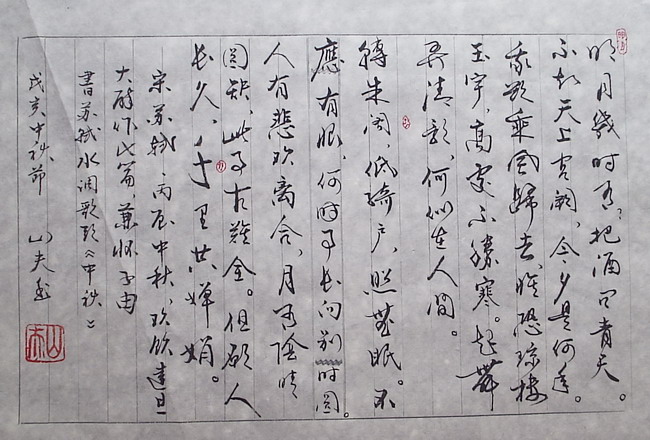 明月幾时有，把酒问青天。
不知天上宫阙，今夕是何年。
我欲乘风歸去，唯恐琼楼
玉宇，高处不勝寒。起舞
弄清影，何似在人间。
轉朱阁，低绮户，照無眠。不
應有恨，何时事长向别时圆。
人有悲欢离合，月有阴晴
圆缺，此事古难全。但願人
长久，千里共婵娟。
宋苏轼，丙辰中秋，欢饮達旦
大醉作此篇兼怀子由
書苏轼水调歌头《中秋》
戊亥中秋節 山夫